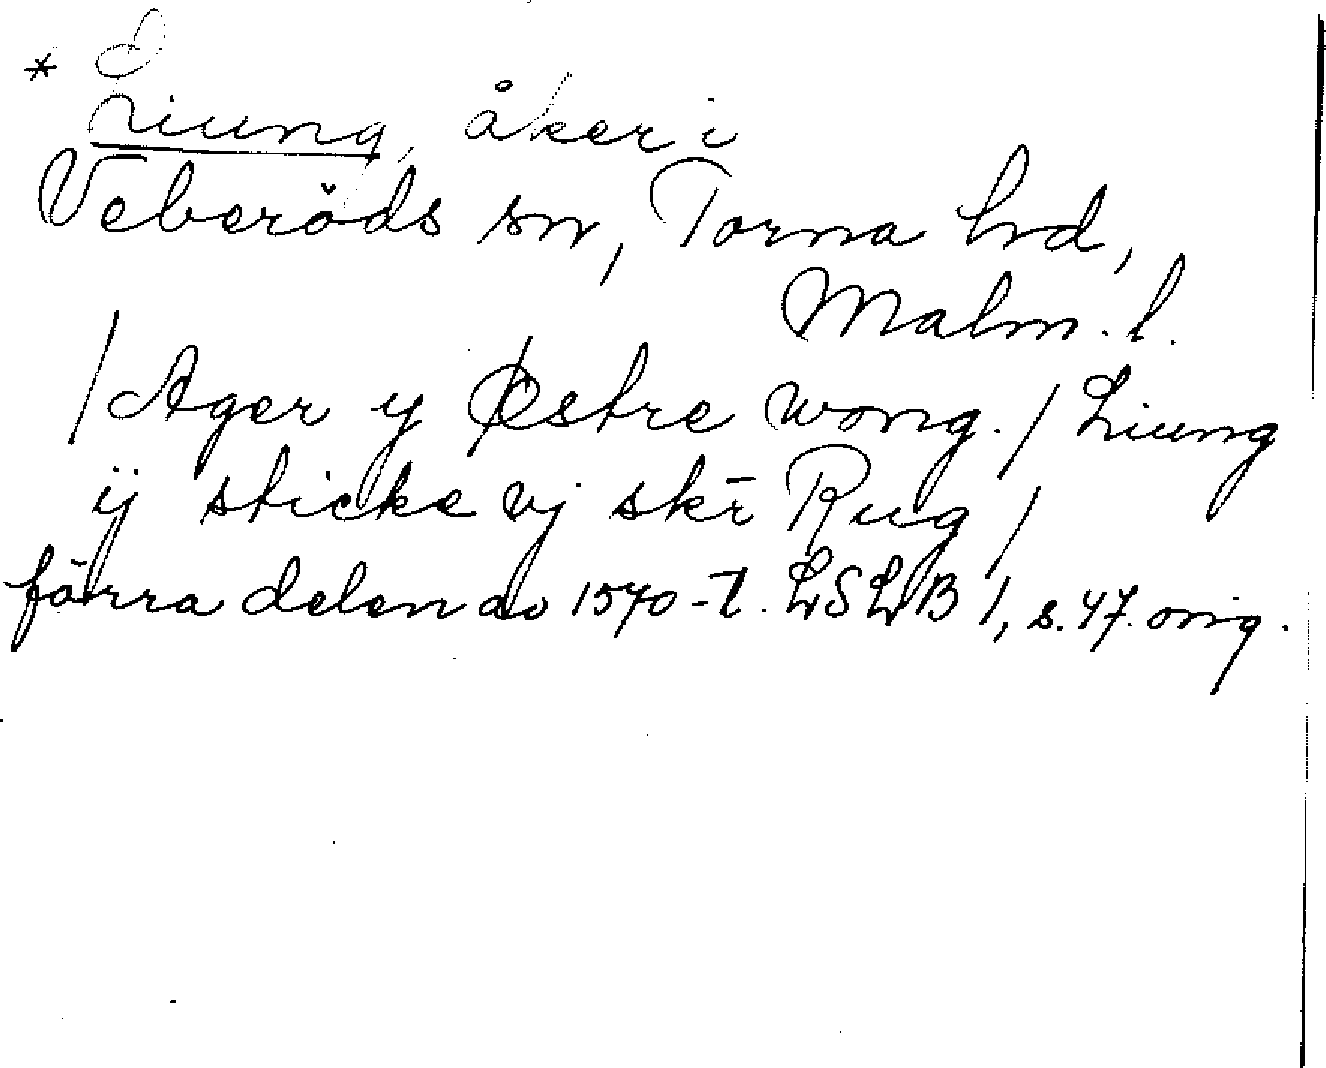 * Liung, åker i
Veberöds sn, Torna hd,
Malm. l.
/Ager ÿ Østre wong. / Liung
ij sticke vj skr̄ Rug /
förra delen av 1570-t. LSLB I, s. 47. orig.